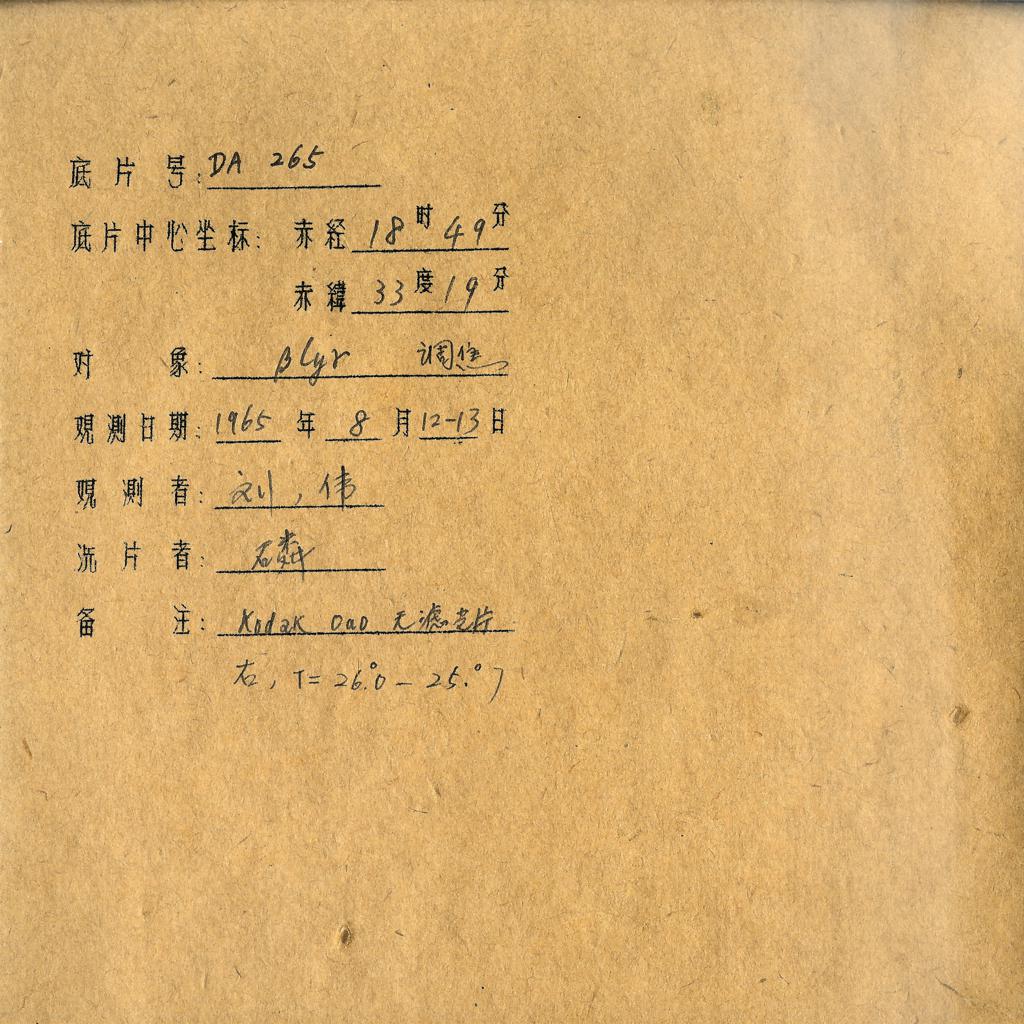 底片号: DA 265
底片中心坐标: 赤经 18时 49分
赤緯 33度 19分
对象: βlyr 调焦
观测日期: 1965年 8月 12-13日
观测者: 刘, 伟
洗片者: 石粦
备注: Kodak OaO 无滤光片
右, T= 26.°0 — 25.°7